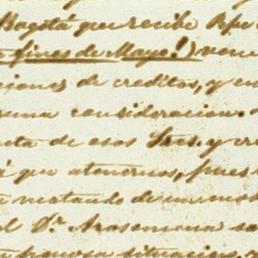 Bogotá que recibe
fines de Mayo!) ven
iones de creditos, y en
ena consideracion.
ta de esos Sres. y cr
á que atenernos, pues
matando
l Dr. Arosemena
penosa situacion,